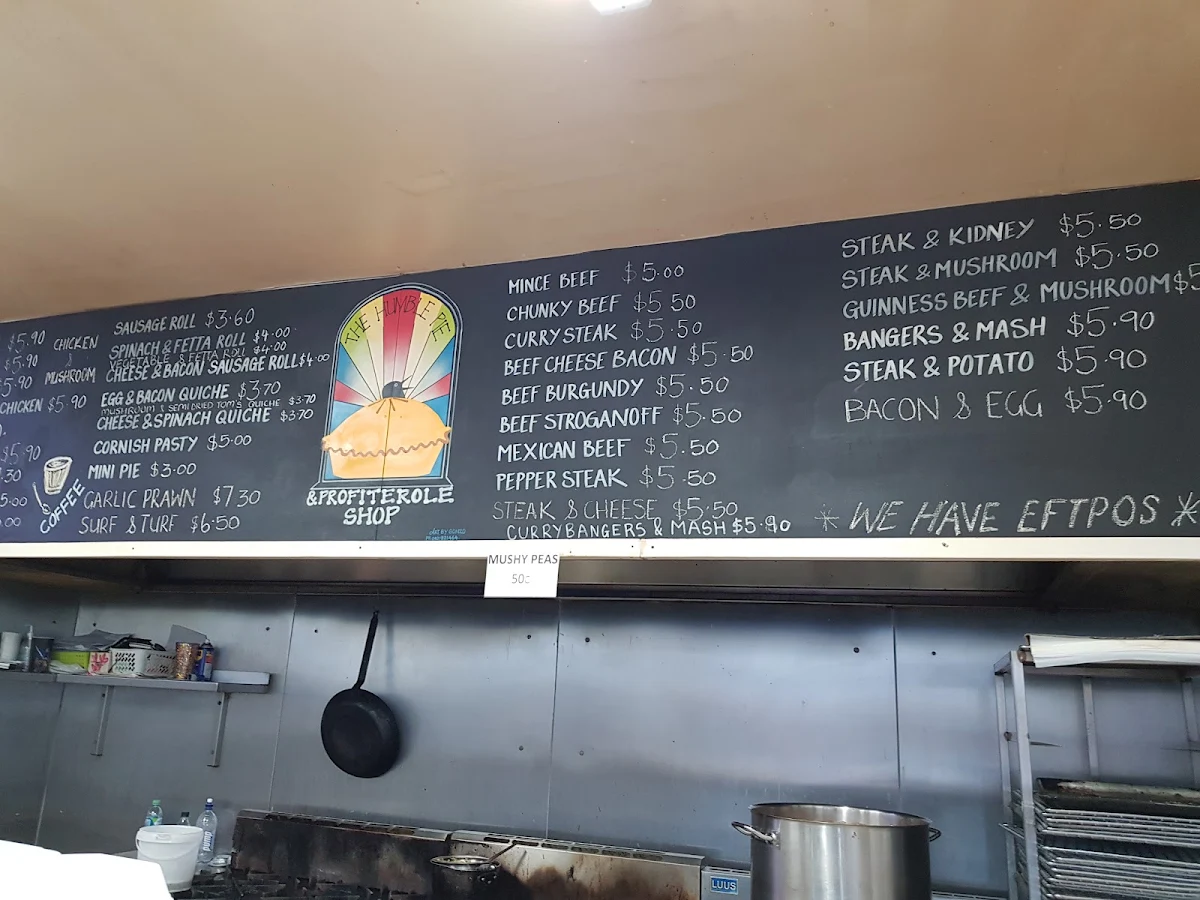 $5.90
$5.90
5.90
CHICKEN
&
MUSHROOM
CHICKEN $5.90
$5.90
.30
5.00
.00
COFFEE
SAUSAGE ROLL $3.60
SPINACH & FETTA ROLL $4.00
VEGETABLE & FETTA ROLL $4.00
CHEESE & BACON SAUSAGE ROLL $4.00
EGG & BACON QUICHE $3.70
MUSHROOM & SEMI DRIED TOM'S QUICHE $3.70
CHEESE & SPINACH QUICHE $3.70
CORNISH PASTY $5.00
MINI PIE $3.00
GARLIC PRAWN $7.30
SURF & TURF $6.50
THE HUMBLE PIE
& PROFITEROLE
SHOP
MINCE BEEF $5.00
CHUNKY BEEF $5.50
CURRY STEAK $5.50
BEEF CHEESE BACON $5.50
BEEF BURGUNDY $5.50
BEEF STROGANOFF $5.50
MEXICAN BEEF $5.50
PEPPER STEAK $5.50
STEAK & CHEESE $5.50
CURRY BANGERS & MASH $5.90
STEAK & KIDNEY $5.50
STEAK & MUSHROOM $5.50
GUINNESS BEEF & MUSHROOM $5
BANGERS & MASH $5.90
STEAK & POTATO $5.90
BACON & EGG $5.90
* WE HAVE EFTPOS *
MUSHY PEAS
50c
LUUS
pump